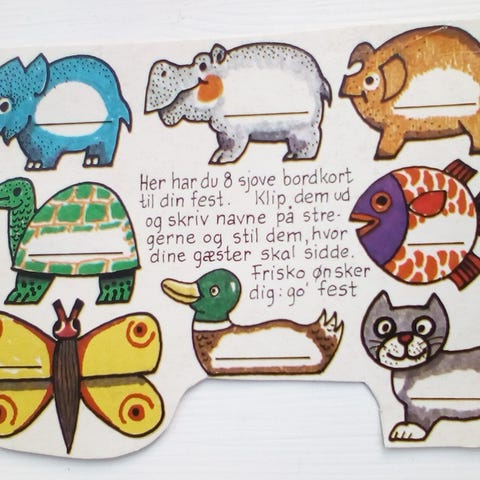 Her har du 8 sjove bordkort
til din fest. Klip dem ud
og skriv navne på stre-
gerne og stil dem, hvor
dine gæster skal sidde.
Frisko ønsker
dig: go' fest